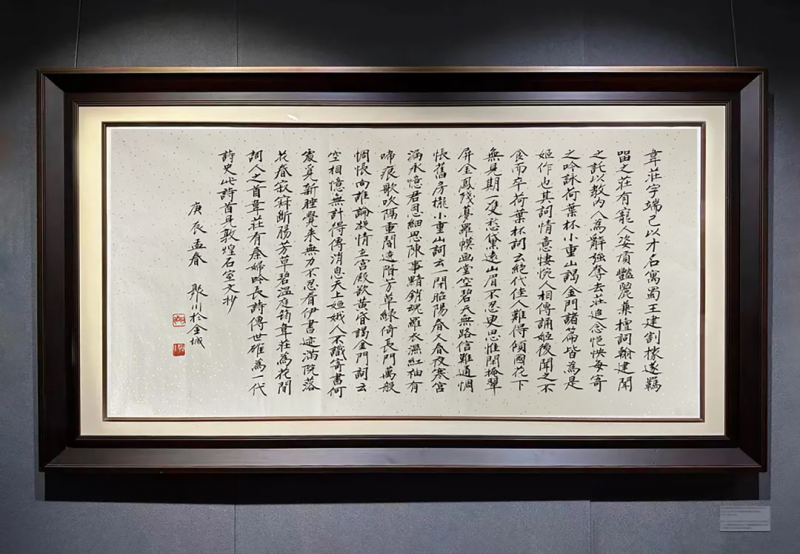 韋莊字端己以才名寓蜀王建割據遂羈
畱之莊有寵人姿質豔麗兼擅詞翰建聞
之託以教內人為辭強奪去莊追念悒怏每寄
之吟詠荷葉杯小重山謁金門諸篇皆為是
姬作也其詞情意悽惋人相傳誦姬後聞之不
食而卒荷葉杯詞云絕代佳人難得傾國花下
無見期一雙愁黛遠山眉不忍更思惟閒掩翠
屏金鳳殘夢羅幙畫堂空碧天無路信難通惆
悵舊房櫳小重山詞云一閉昭陽春又春夜寒宮
漏永憶君恩細思陳事黯銷魂羅衣濕紅袖有
啼痕歌吹隔重閽遶階芳草綠倚長門萬般
惆悵向誰論凝情立宮殿欲黃昏謁金門詞云
空相憶無計得傳消息天上姮娥人不識寄書何
處覓新睡覺来無力不忍看伊書迹滿院落
花春寂寂斷腸芳草碧溫庭筠韋莊為花間
詞人之首韋莊有秦婦吟長詩傳世確為一代
詩史此詩首見敦煌石室文抄
庚辰孟春 聚川於金城